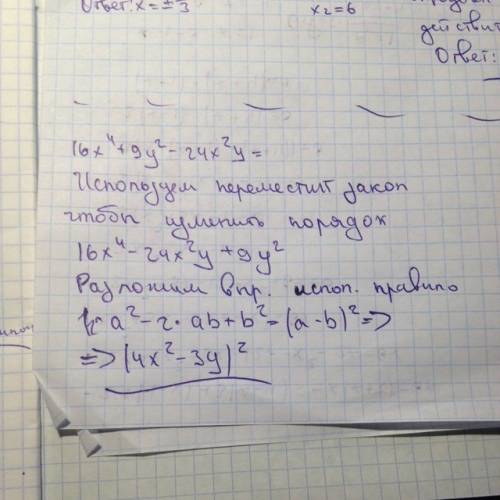 Ответ: x = ±3
x₂ = 6
действит
Ответ:
16x⁴ + 9y² - 24x²y =
Используем переместит закон
чтобы изменить порядок
16x⁴ - 24x²y + 9y²
Разложим в пр. испол. правило
a² - 2·ab + b² = (a - b)² =>
=> (4x² - 3y)²